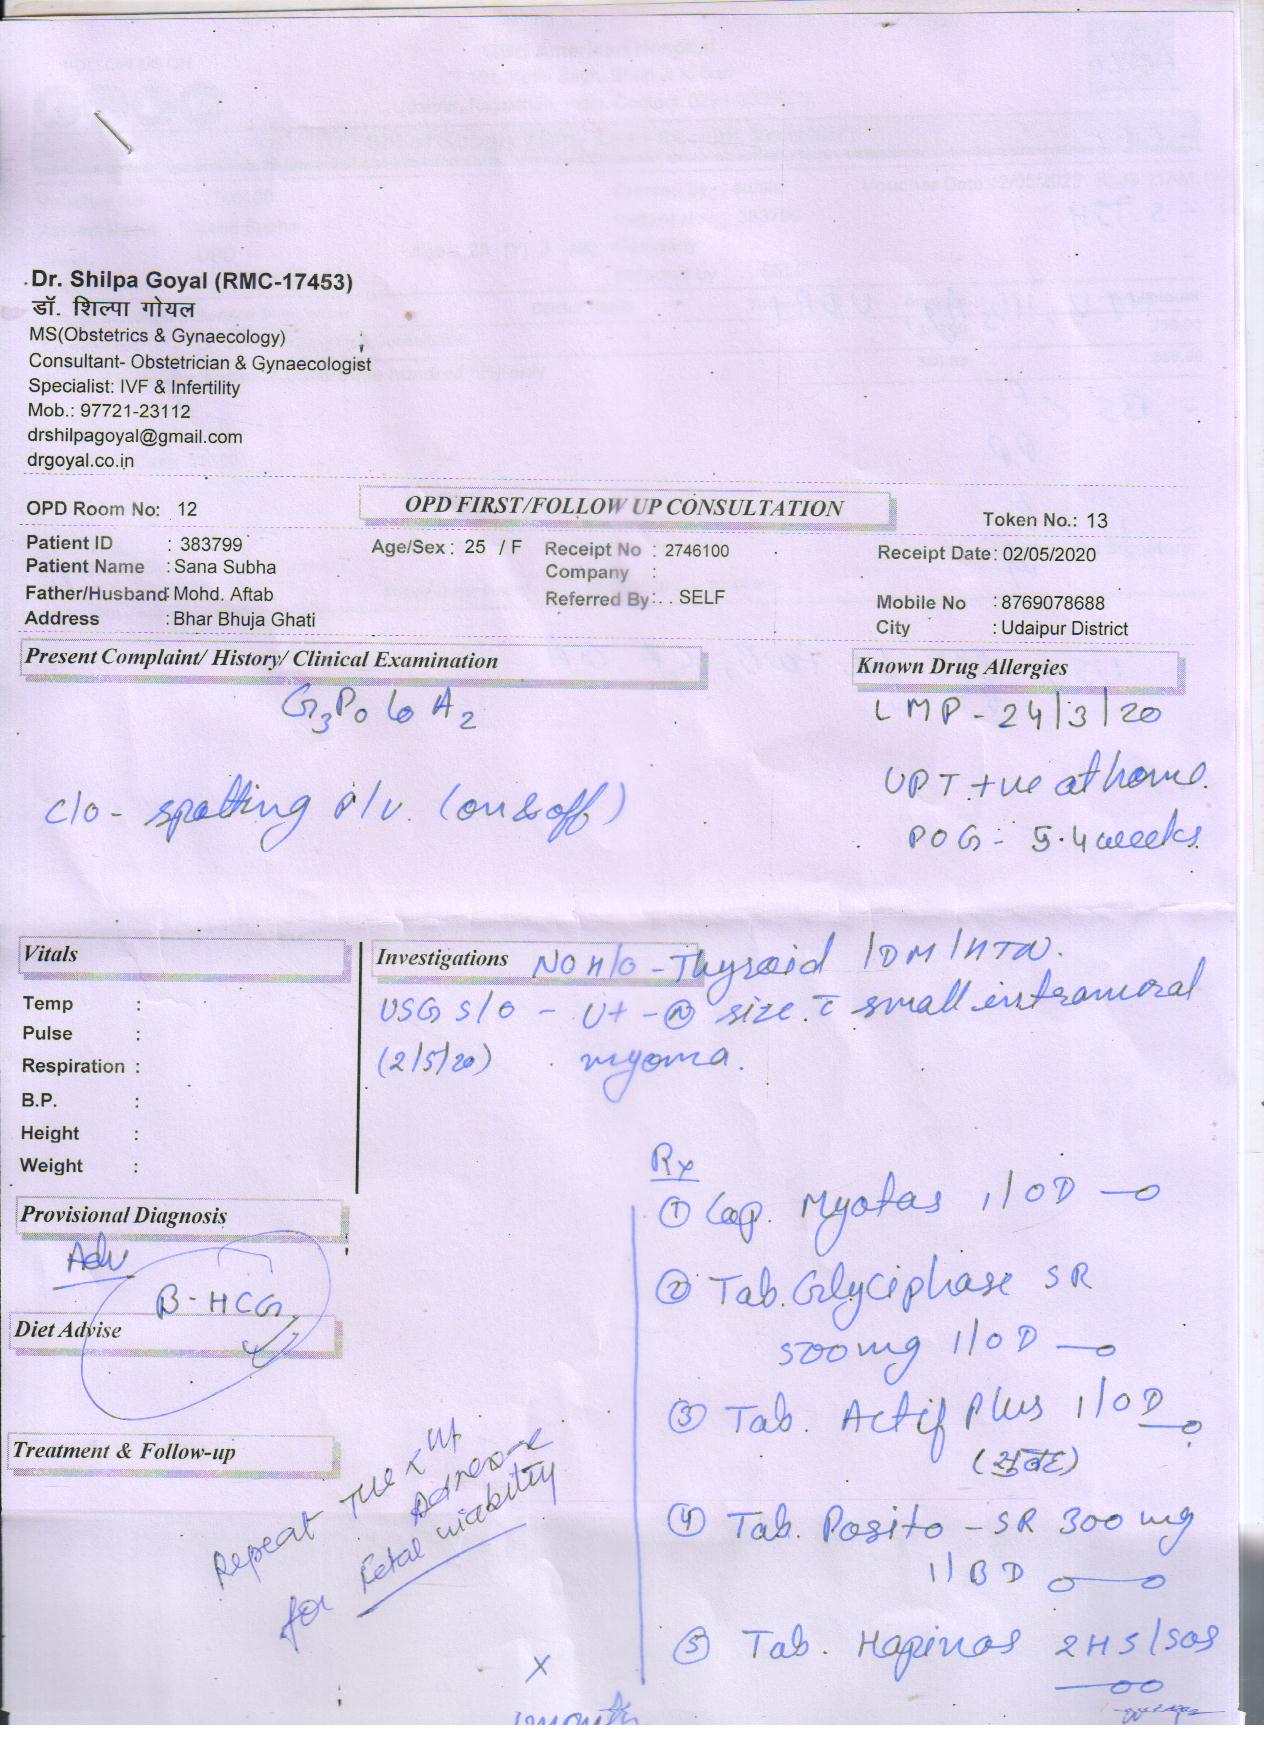 Dr. Shilpa Goyal (RMC-17453)
डॉ. शिल्पा गोयल
MS(Obstetrics & Gynaecology)
Consultant- Obstetrician & Gynaecologist
Specialist: IVF & Infertility
Mob.: 97721-23112
drshilpagoyal@gmail.com
drgoyal.co.in
OPD Room No: 12
OPD FIRST/FOLLOW UP CONSULTATION
Token No.: 13
Patient ID : 383799 Age/Sex : 25 / F Receipt No : 2746100 Receipt Date : 02/05/2020
Patient Name : Sana Subha Company :
Father/Husband : Mohd. Aftab Referred By : . . SELF Mobile No : 8769078688
Address : Bhar Bhuja Ghati City : Udaipur District
Present Complaint/ History/ Clinical Examination
Known Drug Allergies
G3P0L0A2
LMP - 24/3/20
UPT +ve at home.
c/o - spotting P/V. (on & off)
POG - 5.4 weeks
Vitals
Temp :
Pulse :
Respiration :
B.P. :
Height :
Weight :
Investigations NO H/O - Thyroid /DM/HTN.
USG S/O - Ut - (N) size. c̄ small intramural
(2/5/20) myoma.
Provisional Diagnosis
Adv
B-HCG
Diet Advise
Treatment & Follow-up
Repeat
for Fetal viability
Rx
① Cap. Myotas 1/OD
② Tab. Glyciphase SR
500mg 1/OD
③ Tab. Actif Plus 1/OD
(सुबह)
④ Tab. Posito - SR 300 mg
1/BD
⑤ Tab. Hapinos 2HS/SOS
x